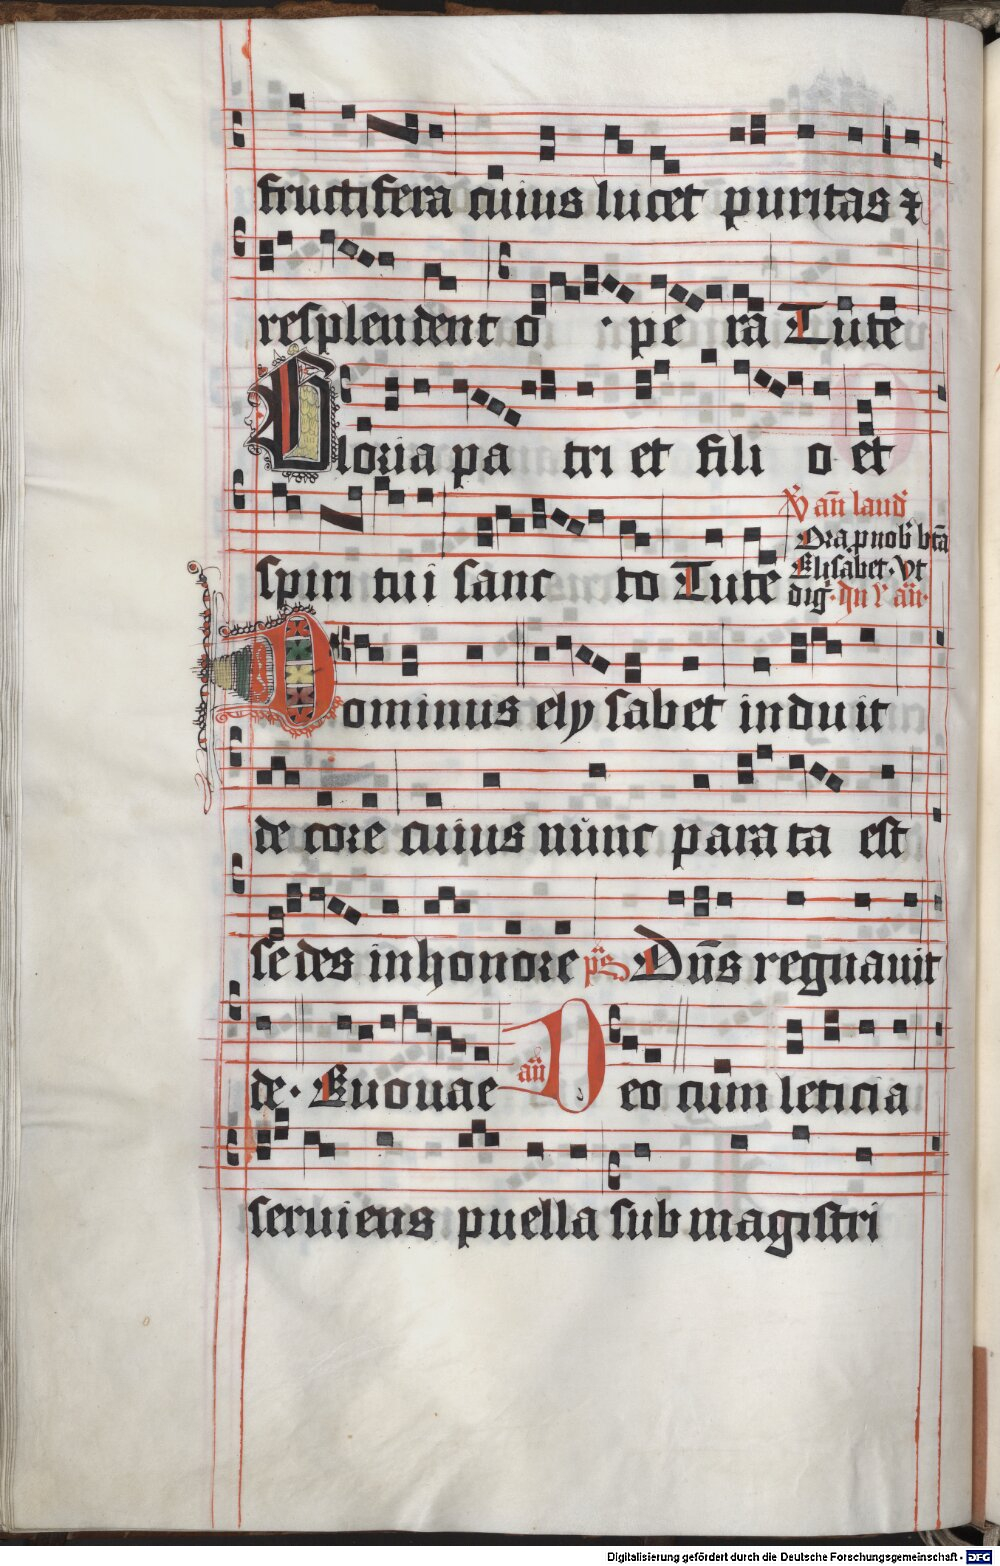 fructifera cuius lucet puritas ⁊
resplendent o pe ra Tu te
Gloria pa tri et fili o et
spiri tu i sanc to Tu te
V̄ an̄ laud̄
Ora p nob̄ btā
Elisabet. Vt
diḡ. In l' an̄.
Dominus ely sabet induit
de core cuius nunc para ta est
se des in honore ps̄ Dn̄s regnauit
de. Euouae an̄ Deo cum leticia
seruiens puella sub magistri
Digitalisierung gefördert durch die Deutsche Forschungsgemeinschaft - DFG